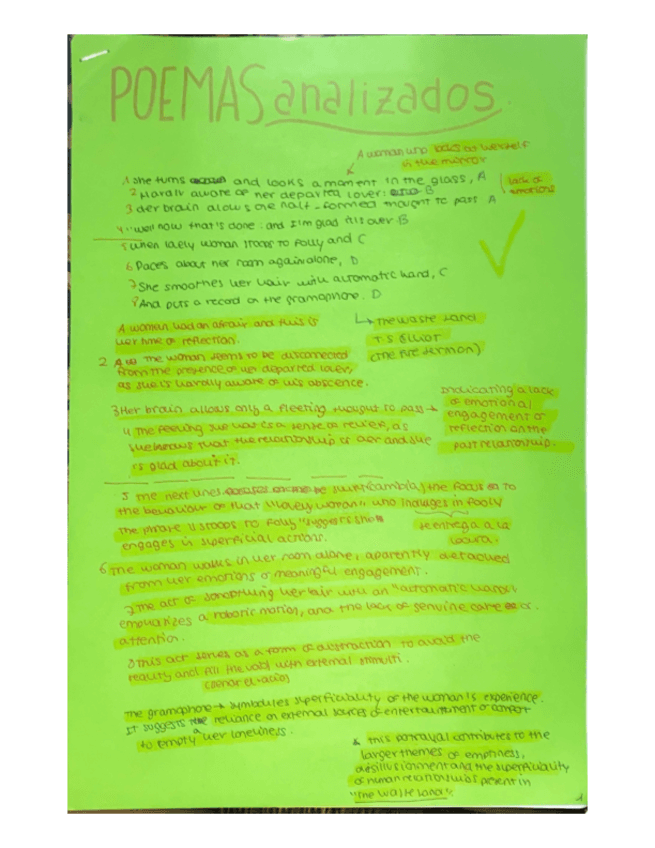 POEMAS analizados.
A woman who looks as herself
in the mirror
1 She turns and looks a moment in the glass, A
2 Hardly aware of her departed lover: B
3 Her brain allows one half-formed thought to pass A
4 "Well now that's done: and I'm glad it is over B
lack of
emotions
5 When lovely woman stoops to folly and C
6 Paces about her room again, alone, D
7 She smoothes her hair with automatic hand, C
8 And puts a record on the gramophone. D
A woman had an afrair and this is
her time of reflection.
The Waste Land
T.S Elliot
(The Fire Sermon)
2 The woman seems to be disconnected
from the presence of her departed lover,
as she is hardly aware of his abscence.
3 Her brain allows only a fleeting thought to pass →
Indicating a lack
of emotional
engagement or
reflection on the
past relationship.
4 The feeling she has is a sense of relief, as
she knows that the relationship is over and she
is glad about it.
5 The next lines (cambia) the focus to
the behaviour of that "lovely woman" who indulges in folly
The phrase "stoops to folly" suggests she
engages in superficial actions.
se entrega a la
locura.
6 The woman walks in her room alone, aparently detached
from her emotions or meaningful engagement.
7 The act of smoothing her hair with an "automatic hand"
emphasizes a robotic motion, and the lack of genuine care or
attention.
8 This act serves as a form of distraction to avoid the
reality and fill the void with external stimuli.
The gramophone → symbolizes superficiality of the woman's experience.
It suggests reliance on external sources of entertainment or comfort
to empty her loneliness.
& this portrayal contributes to the
larger themes of emptiness,
disillusionment and the superficiality
of human relationships present in
"The Waste Land".
1